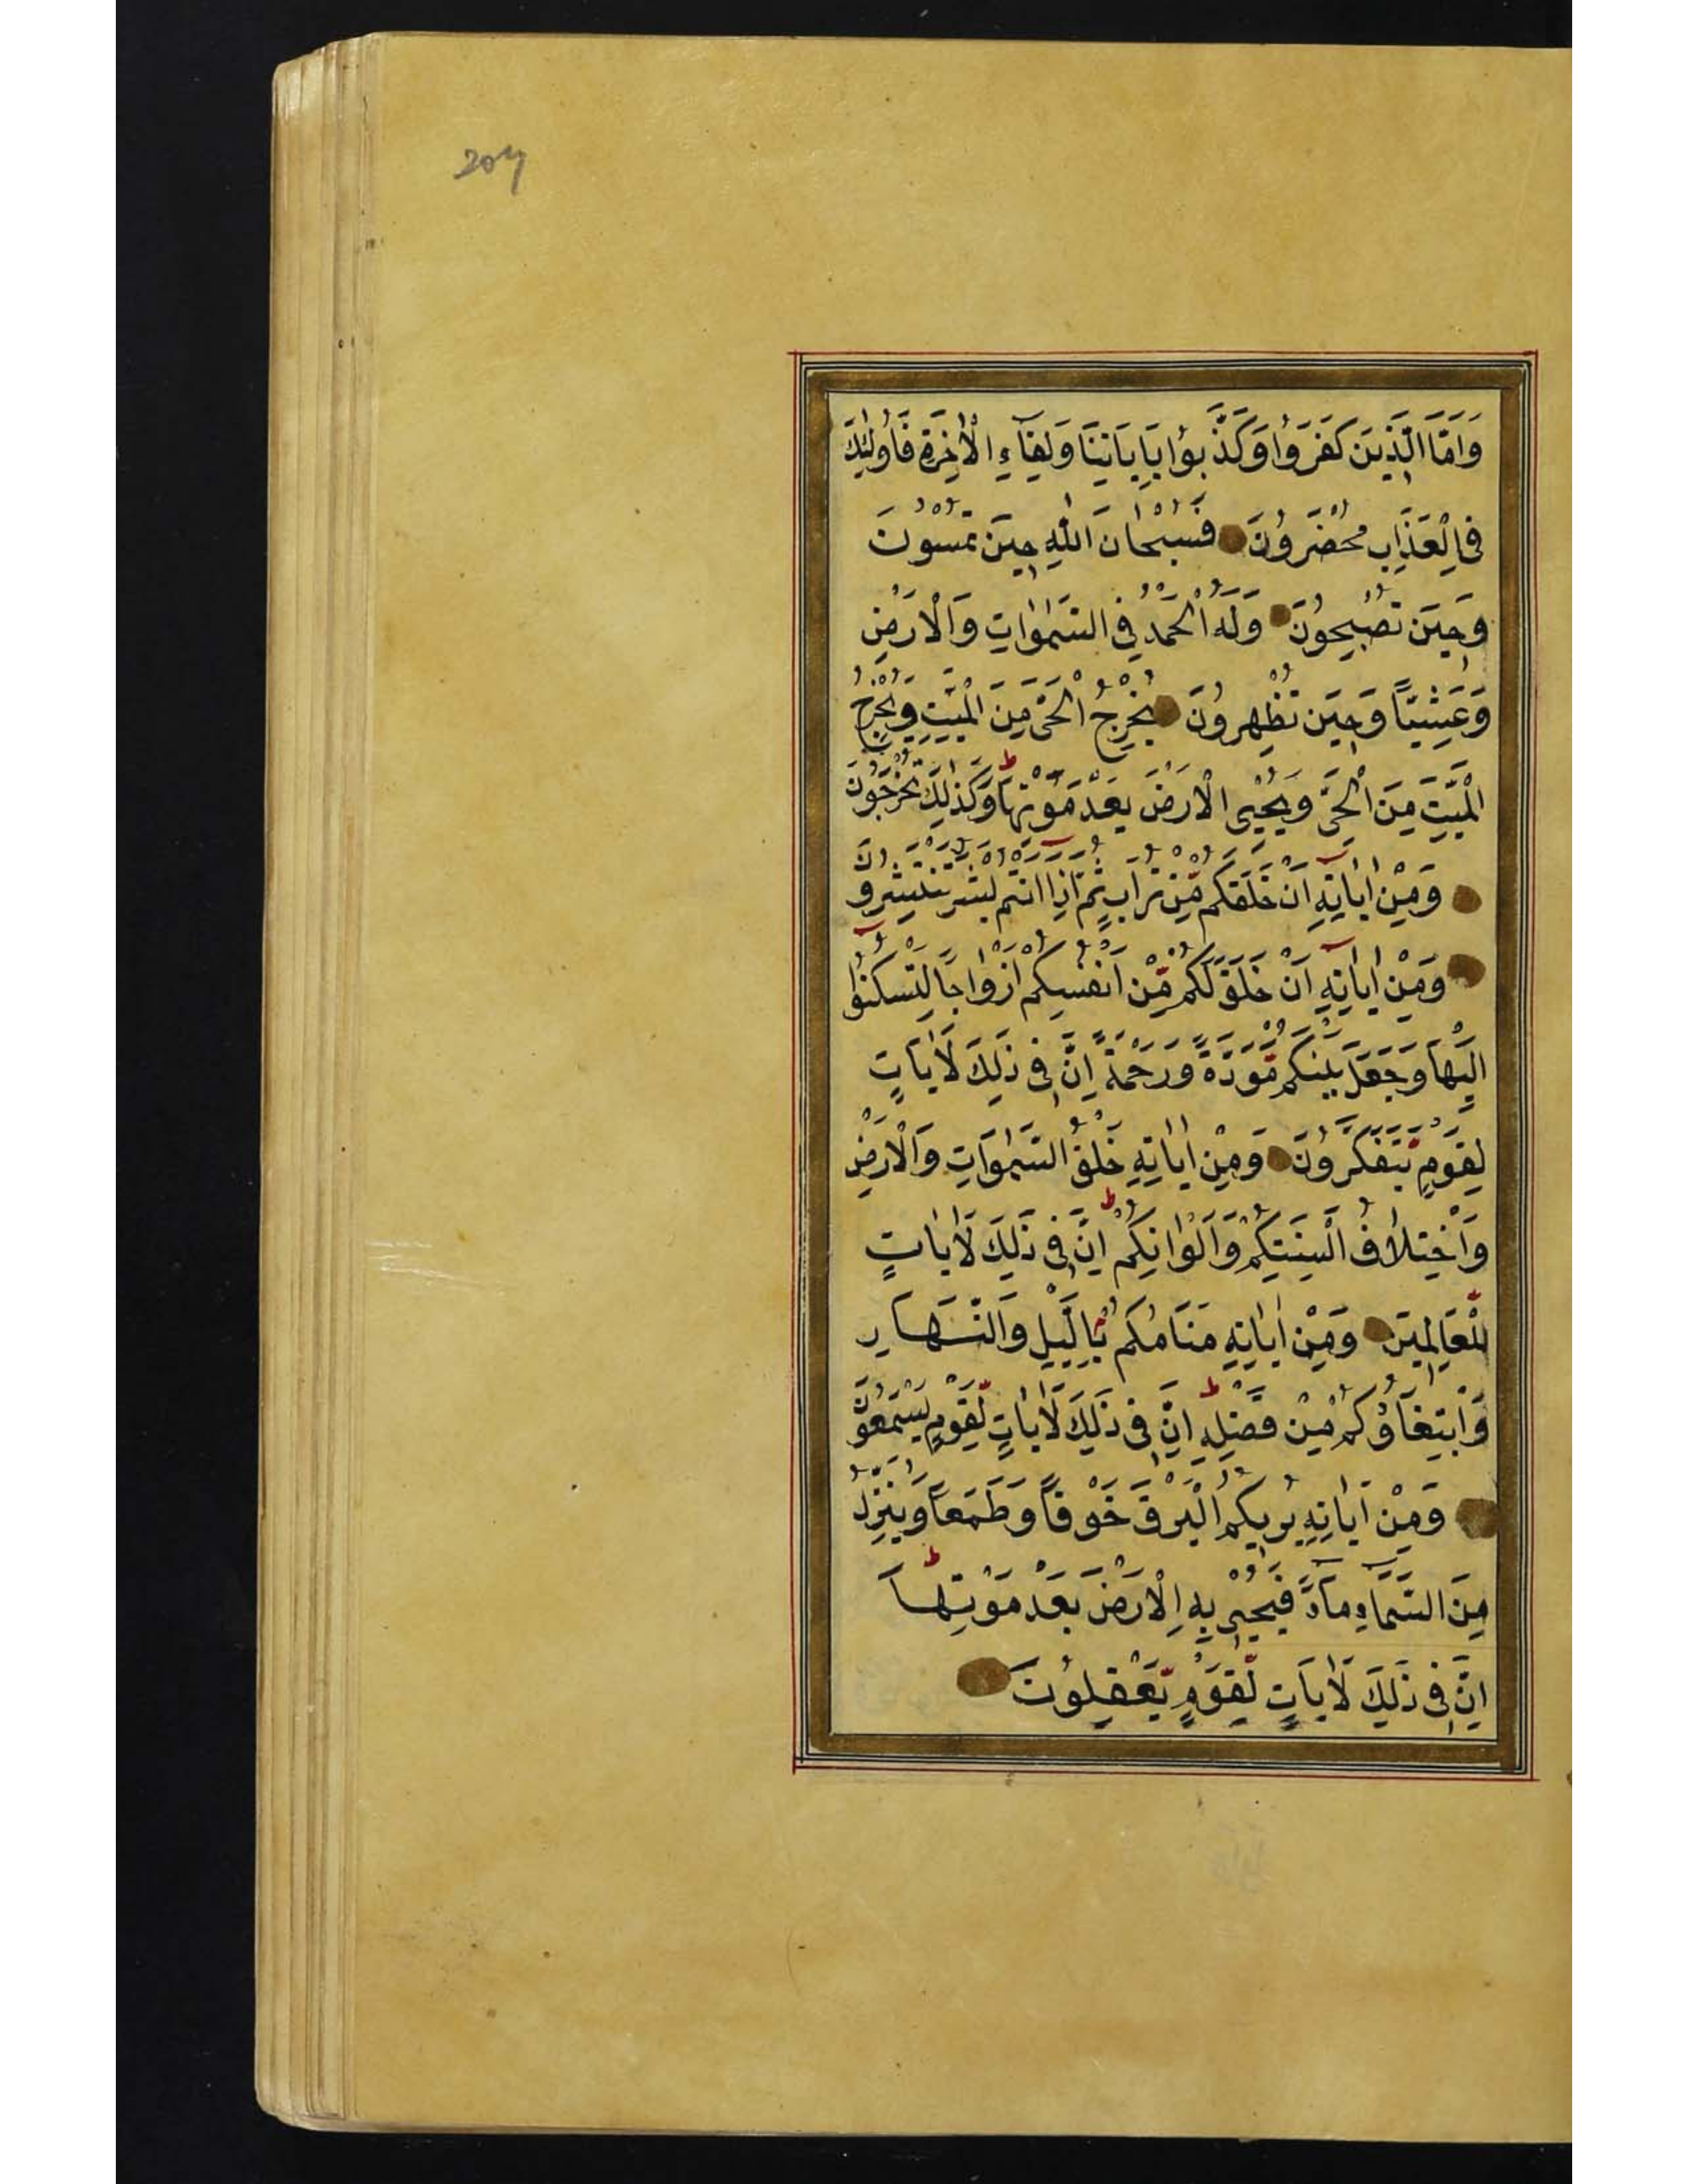 204
وَاَمَّا الَّذٖينَ كَفَرَوُا وَكَذَّبوُا بِاٰيَاتِنَا وَلِقَآءِ الْاٰخِرَةِ فَاُولٰئِكَ
فِى الْعَذَابِ مُحْضَروُنَ فَسُبْحٰانَ اللّٰهِ حٖينَ تُمْسُونَ
وَحٖينَ تُصْبِحوُنَ وَلَهُ الْحَمْدُ فِى السَّمٰوٰاتِ وَالْاَرْضِ
وَعَشِيًّا وَحٖينَ تُظْهِروُنَ يُخْرِجُ الْحَىَّ مِنَ الْمَيِّتِ وَيُخْرِجُ
الْمَيِّتَ مِنَ الْحَىِّ وَيُحْيِى الْاَرْضَ بَعْدَ مَوْتِهَا ط وَكَذٰلِكَ تُخْرَجُونَ
وَمِنْ اٰيٰاتِهٖٓ اَنْ خَلَقَكُمْ مِّنْ تُرَابٍ ثُمَّ اِذَآ اَنْتُمْ بَشَرٌ تَنْتَشِروُنَ
وَمِنْ اٰيَاتِهٖٓ اَنْ خَلَقَ لَكُمْ مِّنْ اَنْفُسِكُمْ اَزْوَاجًا لِّتَسْكُنُوٓا
اِلَيْهَا وَجَعَلَ بَيْنَكُمْ مَّوَدَّةً وَّرَحْمَةً اِنَّ فٖى ذٰلِكَ لَاٰيَاتٍ
لِقَوْمٍ يَّتَفَكَّروُنَ وَمِنْ اٰيٰاتِهٖ خَلْقُ السَّمٰوَاتِ وَالْاَرْضِ
وَاخْتِلَافُ اَلْسِنَتِكُمْ وَاَلْوَانِكُمْ ط اِنَّ فٖى ذٰلِكَ لَاٰيَاتٍ
لِّلْعَالِمٖينَ وَمِنْ اٰيٰاتِهٖ مَنَامُكُمْ بِالَّيْلِ وَالنَّهَارِ
وَابْتِغَاؤُكُمْ مِنْ فَضْلِهٖ ط اِنَّ فٖى ذٰلِكَ لَاٰيٰاتٍ لِّقَوْمٍ يَّسْمَعُونَ
وَمِنْ اٰيَاتِهٖ يُرٖيكُمُ الْبَرْقَ خَوْفًا وَطَمَعًا وَيُنَزِّلُ
مِنَ السَّمَآءِ مَآءً فَيُحْيٖى بِهِ الْاَرْضَ بَعْدَ مَوْتِهَا ط
اِنَّ فٖى ذٰلِكَ لَاٰيَاتٍ لِّقَوْمٍ يَّعْقِلُونَ